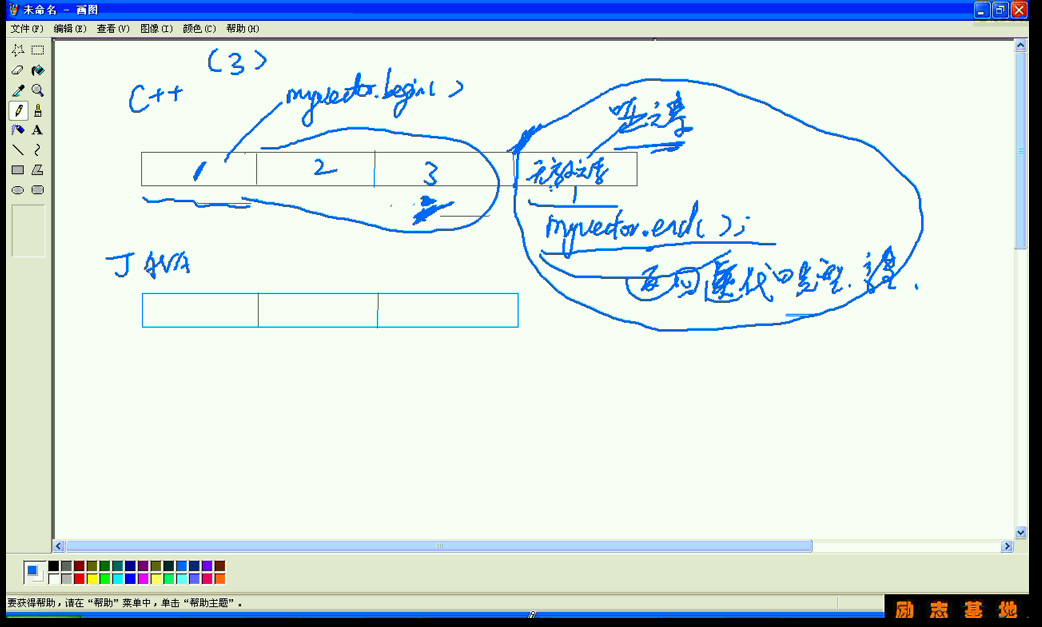 未命名 - 画图
文件(F) 编辑(E) 查看(V) 图像(I) 颜色(C) 帮助(H)
(3)
C++
myvector.begin()
哑元素
1 2 3 无效元素
myvector.end();
JAVA
要获得帮助，请在“帮助”菜单中，单击“帮助主题”。
励志基地